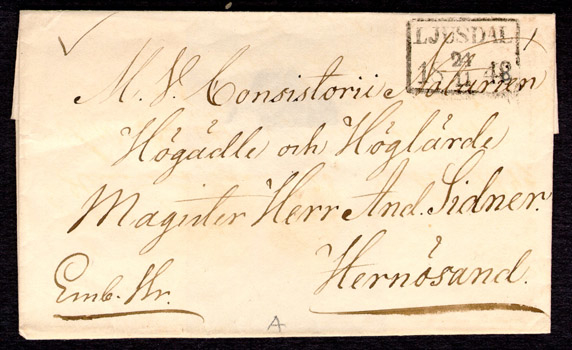 LJUSDAL
24
18 11 48
M. V. Consistorii Notarien
Högädle och Höglärde
Magister Herr And. Sidner.
Hernösand.
Emb. Hr.
A